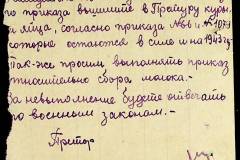 го приказа вышлите в Претуру куры
и яйца, согласно приказа № и № 1071
которые остаются в силе и на 1943 г.
Так-же просим выполнять приказ
относительно сбора молока.-
За невыполнение будете отвечать
по военным законам.-
Претор